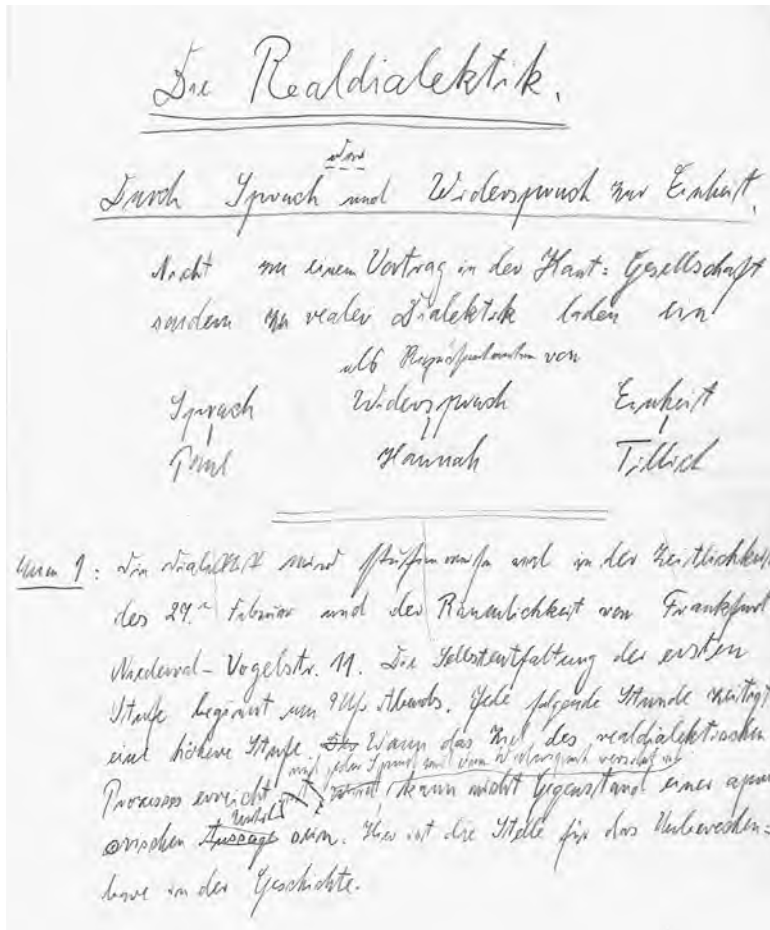 Die Realdialektik.
oder
Durch Spruch und Widerspruch zur Einheit.
Nicht zu einem Vortrag in der Kant=Gesellschaft
sondern zu realer Dialektik laden ein
als Repräsentanten von
Spruch Widerspruch Einheit
Paul Hannah Tillich
Anm 1: Die Dialektik wird stufenweise und in der Zeitlichkeit
des 29. Februar und der Räumlichkeit von Frankfurt
Niederrad-Vogelstr. 11. Die Selbstentfaltung der ersten
Stufe beginnt um 9 Uhr Abends. Jede folgende Stunde zeitigt
eine höhere Stufe Das Wann das Ziel des realdialektischen
und jeder Spruch und dem Widerspruch
Prozesses erreicht kann nicht Gegenstand einer aprio
Urteils
orischen Aussage sein. Hier ist die Stelle für das Unberechen=
bare in der Geschichte.